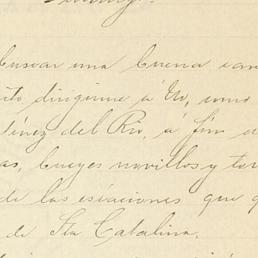 buscar una buena
ito dirigirme á Ud, como
tínez del Rio, á fin
as, bueyes novillos y tor
de las estaciones que q
de Sta Catalina.